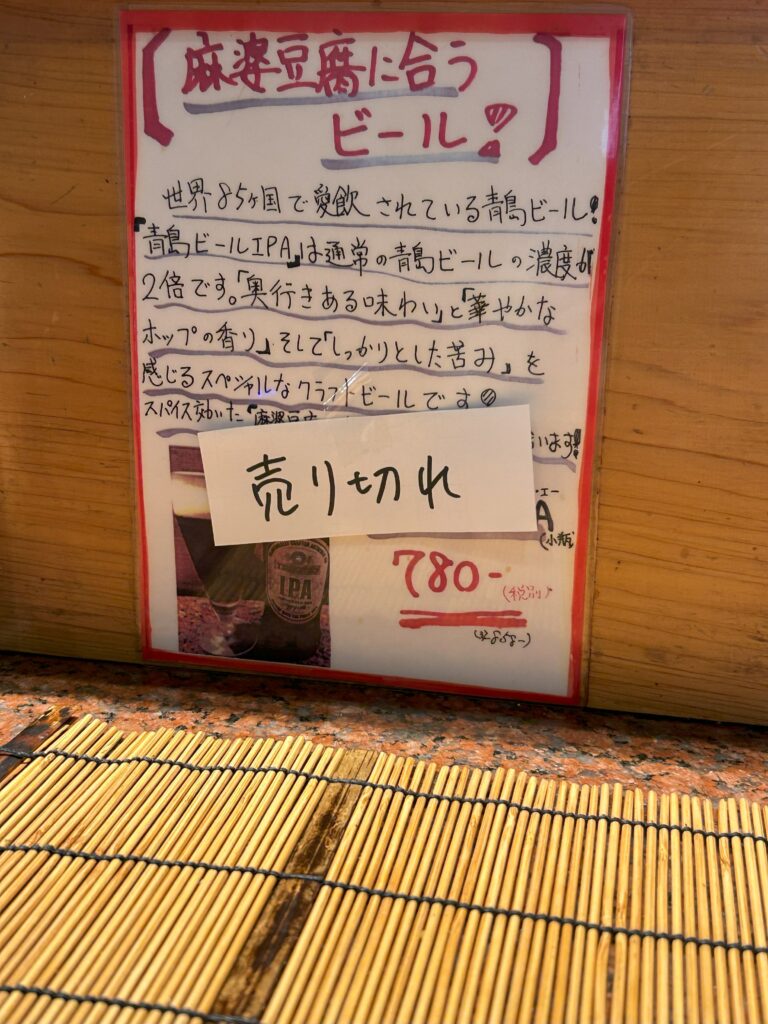 麻婆豆腐に合う
ビール!
世界85ヶ国で愛飲されている青島ビール!
「青島ビールIPA」は通常の青島ビールの濃度が
2倍です。「奥行きある味わい」と「華やかな
ホップの香り」、そして「しっかりとした苦み」を
感じるスペシャルなクラフトビールです!
スパイス効いた「麻婆豆
います!
売り切れ
・エー
A
(小瓶)
IPA
780-
(税別)